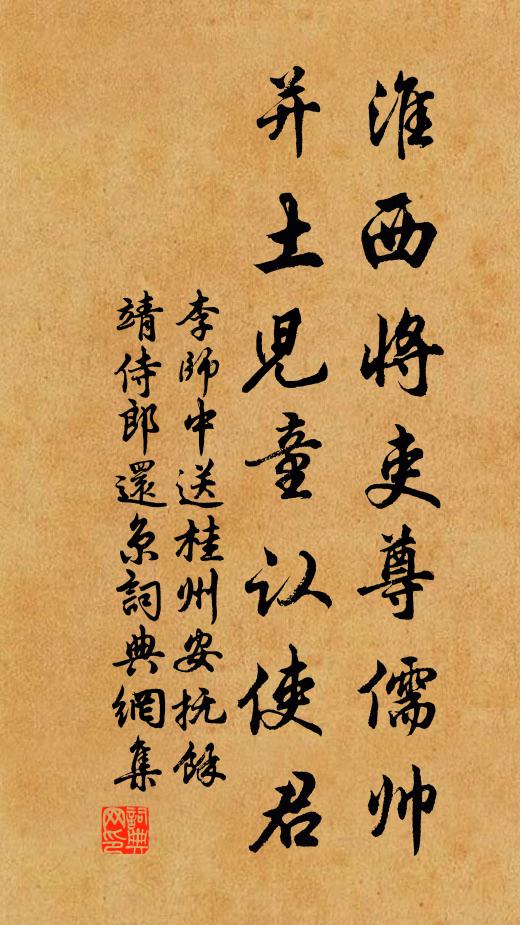 淮西將吏尊儒帅
并土兒童认使君
李師中送桂州安抚餘
靖侍郎還京詞典網集
詞典网印